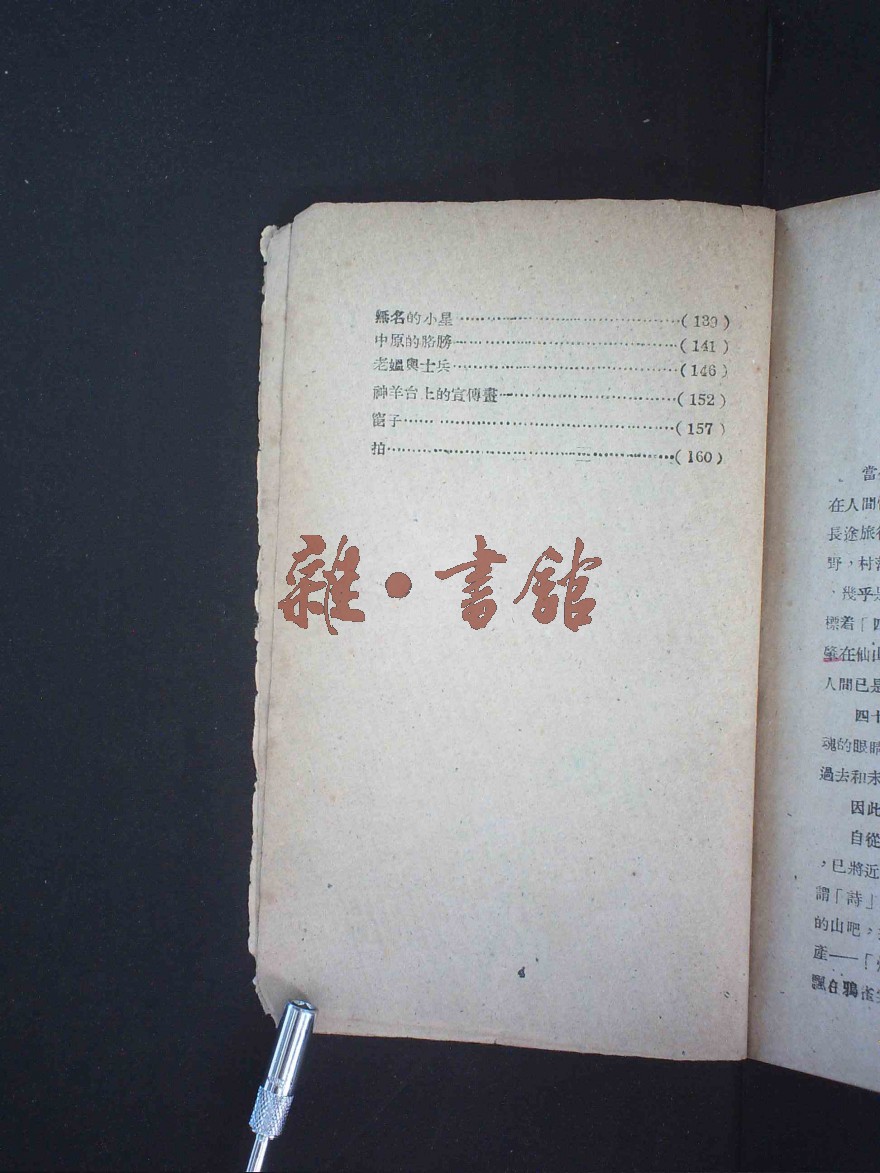 無名的小星……………………………(139)
中原的胳膀……………………………(141)
老嫗與士兵……………………………(146)
神羊台上的宣傳畫……………………(152)
窗子……………………………………(157)
拍………………………………………(160)
雜·書館
4
當
在人間
長途旅
野，村
、幾乎是
標着「四
肇在仙山
人間已是
四十
魂的眼睛
過去和未
因此
自從
，已將近
謂「詩」
的山吧，
產——「
飄在鴉雀